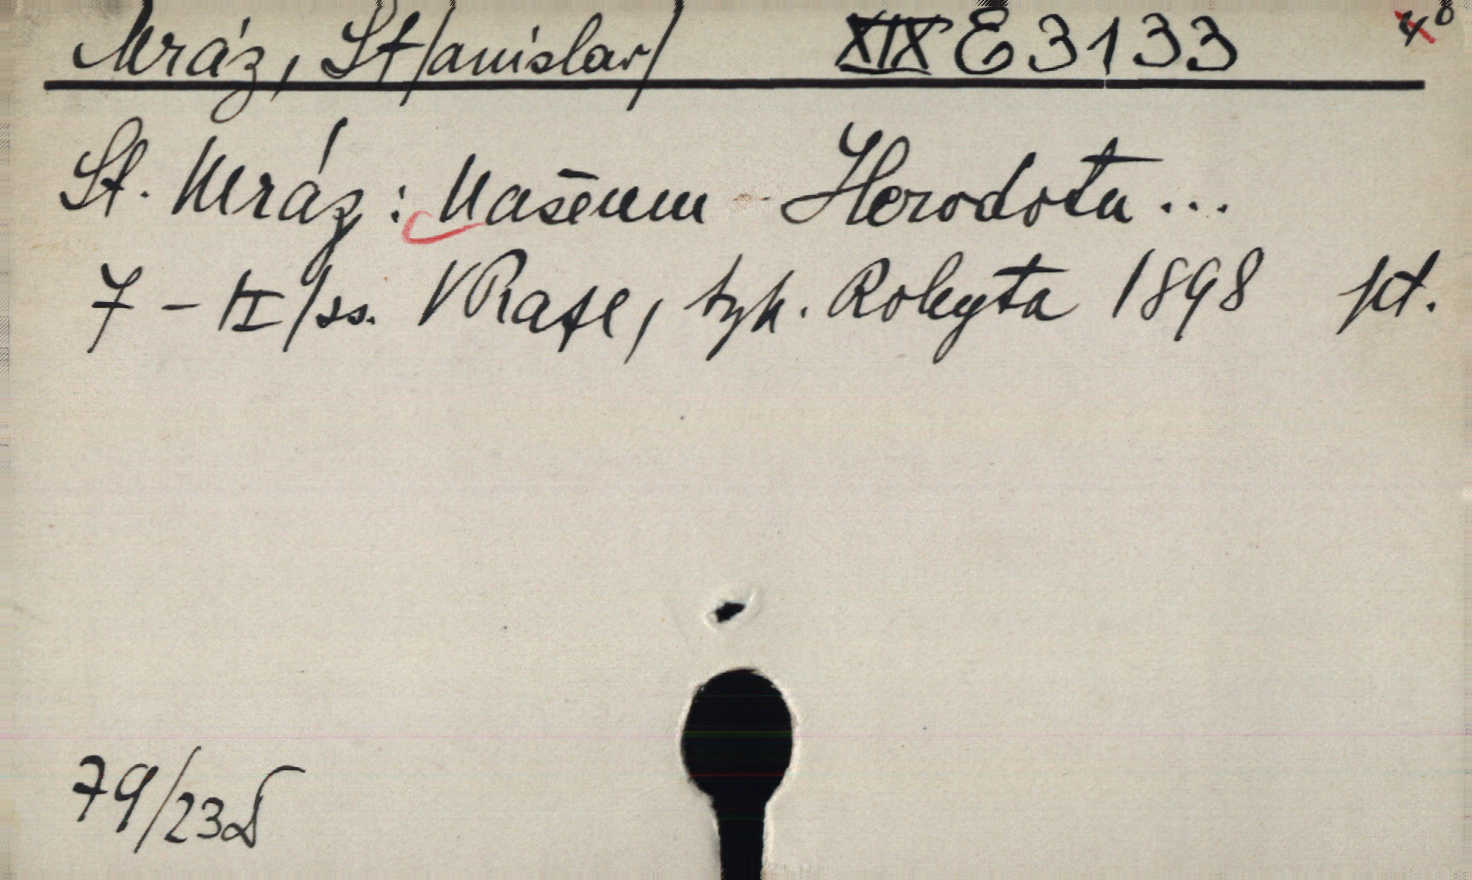 Mráz, St/anislav/ XIX E 3133 4°
St. Mráz: Našemu Herodotu...
7 - II/ss. V Praze, typ. Rokyta 1898 pt.
79/23